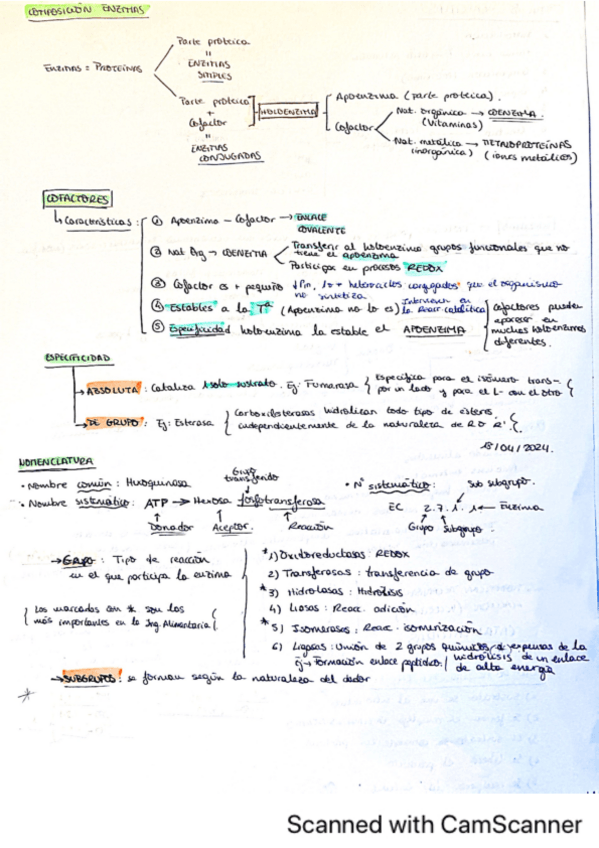 COMPOSICIÓN ENZIMAS
Parte proteica
"
ENZIMAS
SIMPLES
ENZIMAS = PROTEÍNAS
Parte proteica
+
Cofactor
"
ENZIMAS
CONJUGADAS
HOLOENZIMA
Apoenzima (parte proteica).
Cofactor
Nat. orgánica → COENZIMA.
(Vitaminas)
Nat. metálica → METALOPROTEÍNAS
(inorgánica) (iones metálicos)
COFACTORES
↳ Características:
① Apoenzima - Cofactor → ENLACE
COVALENTE
② Nat Org → COENZIMA
Transferir al holoenzima grupos funcionales que no
tiene el apoenzima
Participar en procesos REDOX
③ Cofactor es + pequeño
heterociclos conjugados que el organismo
no sintetiza
④ Estables a la Tª (Apoenzima no lo es)
Intervienen en
la Reacc catalítica
⑤ Especificidad holoenzima la establ. el APOENZIMA
cofactores pueden
aparecer en
muchos holoenzimas
diferentes.
ESPECIFICIDAD
→ ABSOLUTA: Cataliza 1 solo sustrato. Ej: Fumarasa { Específica para el isómero trans-
por un lado y para el L- con el otro }
→ DE GRUPO: Ej: Esterasa { Carboxilesterasas hidrolizan todo tipo de ésteres
independientemente de la naturaleza de R o R'. }
18/04/2024.
NOMENCLATURA
• Nombre común: Hexoquinasa
Grupo
transferido
• Nombre sistemático: ATP → Hexosa fosfotransferasa
Donador Aceptor. Reacción
• Nº sistemático: Sub subgrupo.
EC 2.7.1.1 ← Enzima
Grupo Subgrupo.
→ GRUPO: Tipo de reacción
en el que participa la enzima
{ Los marcados con * son los
más importantes en la Ing. Alimentaria }
*1) Oxidoreductasas: REDOX
2) Transferasas: transferencia de grupo
*3) Hidrolasas: Hidrólisis
4) Liasas: Reacc. adición
*5) Isomerasas: Reacc. isomerización
6) Ligasas: Unión de 2 grupos químicos a expensas de la
Ej → Formación enlace peptídico / hidrólisis de un enlace
de alta energía
→ SUBGRUPOS: se forman según la naturaleza del dador
*
Scanned with CamScanner